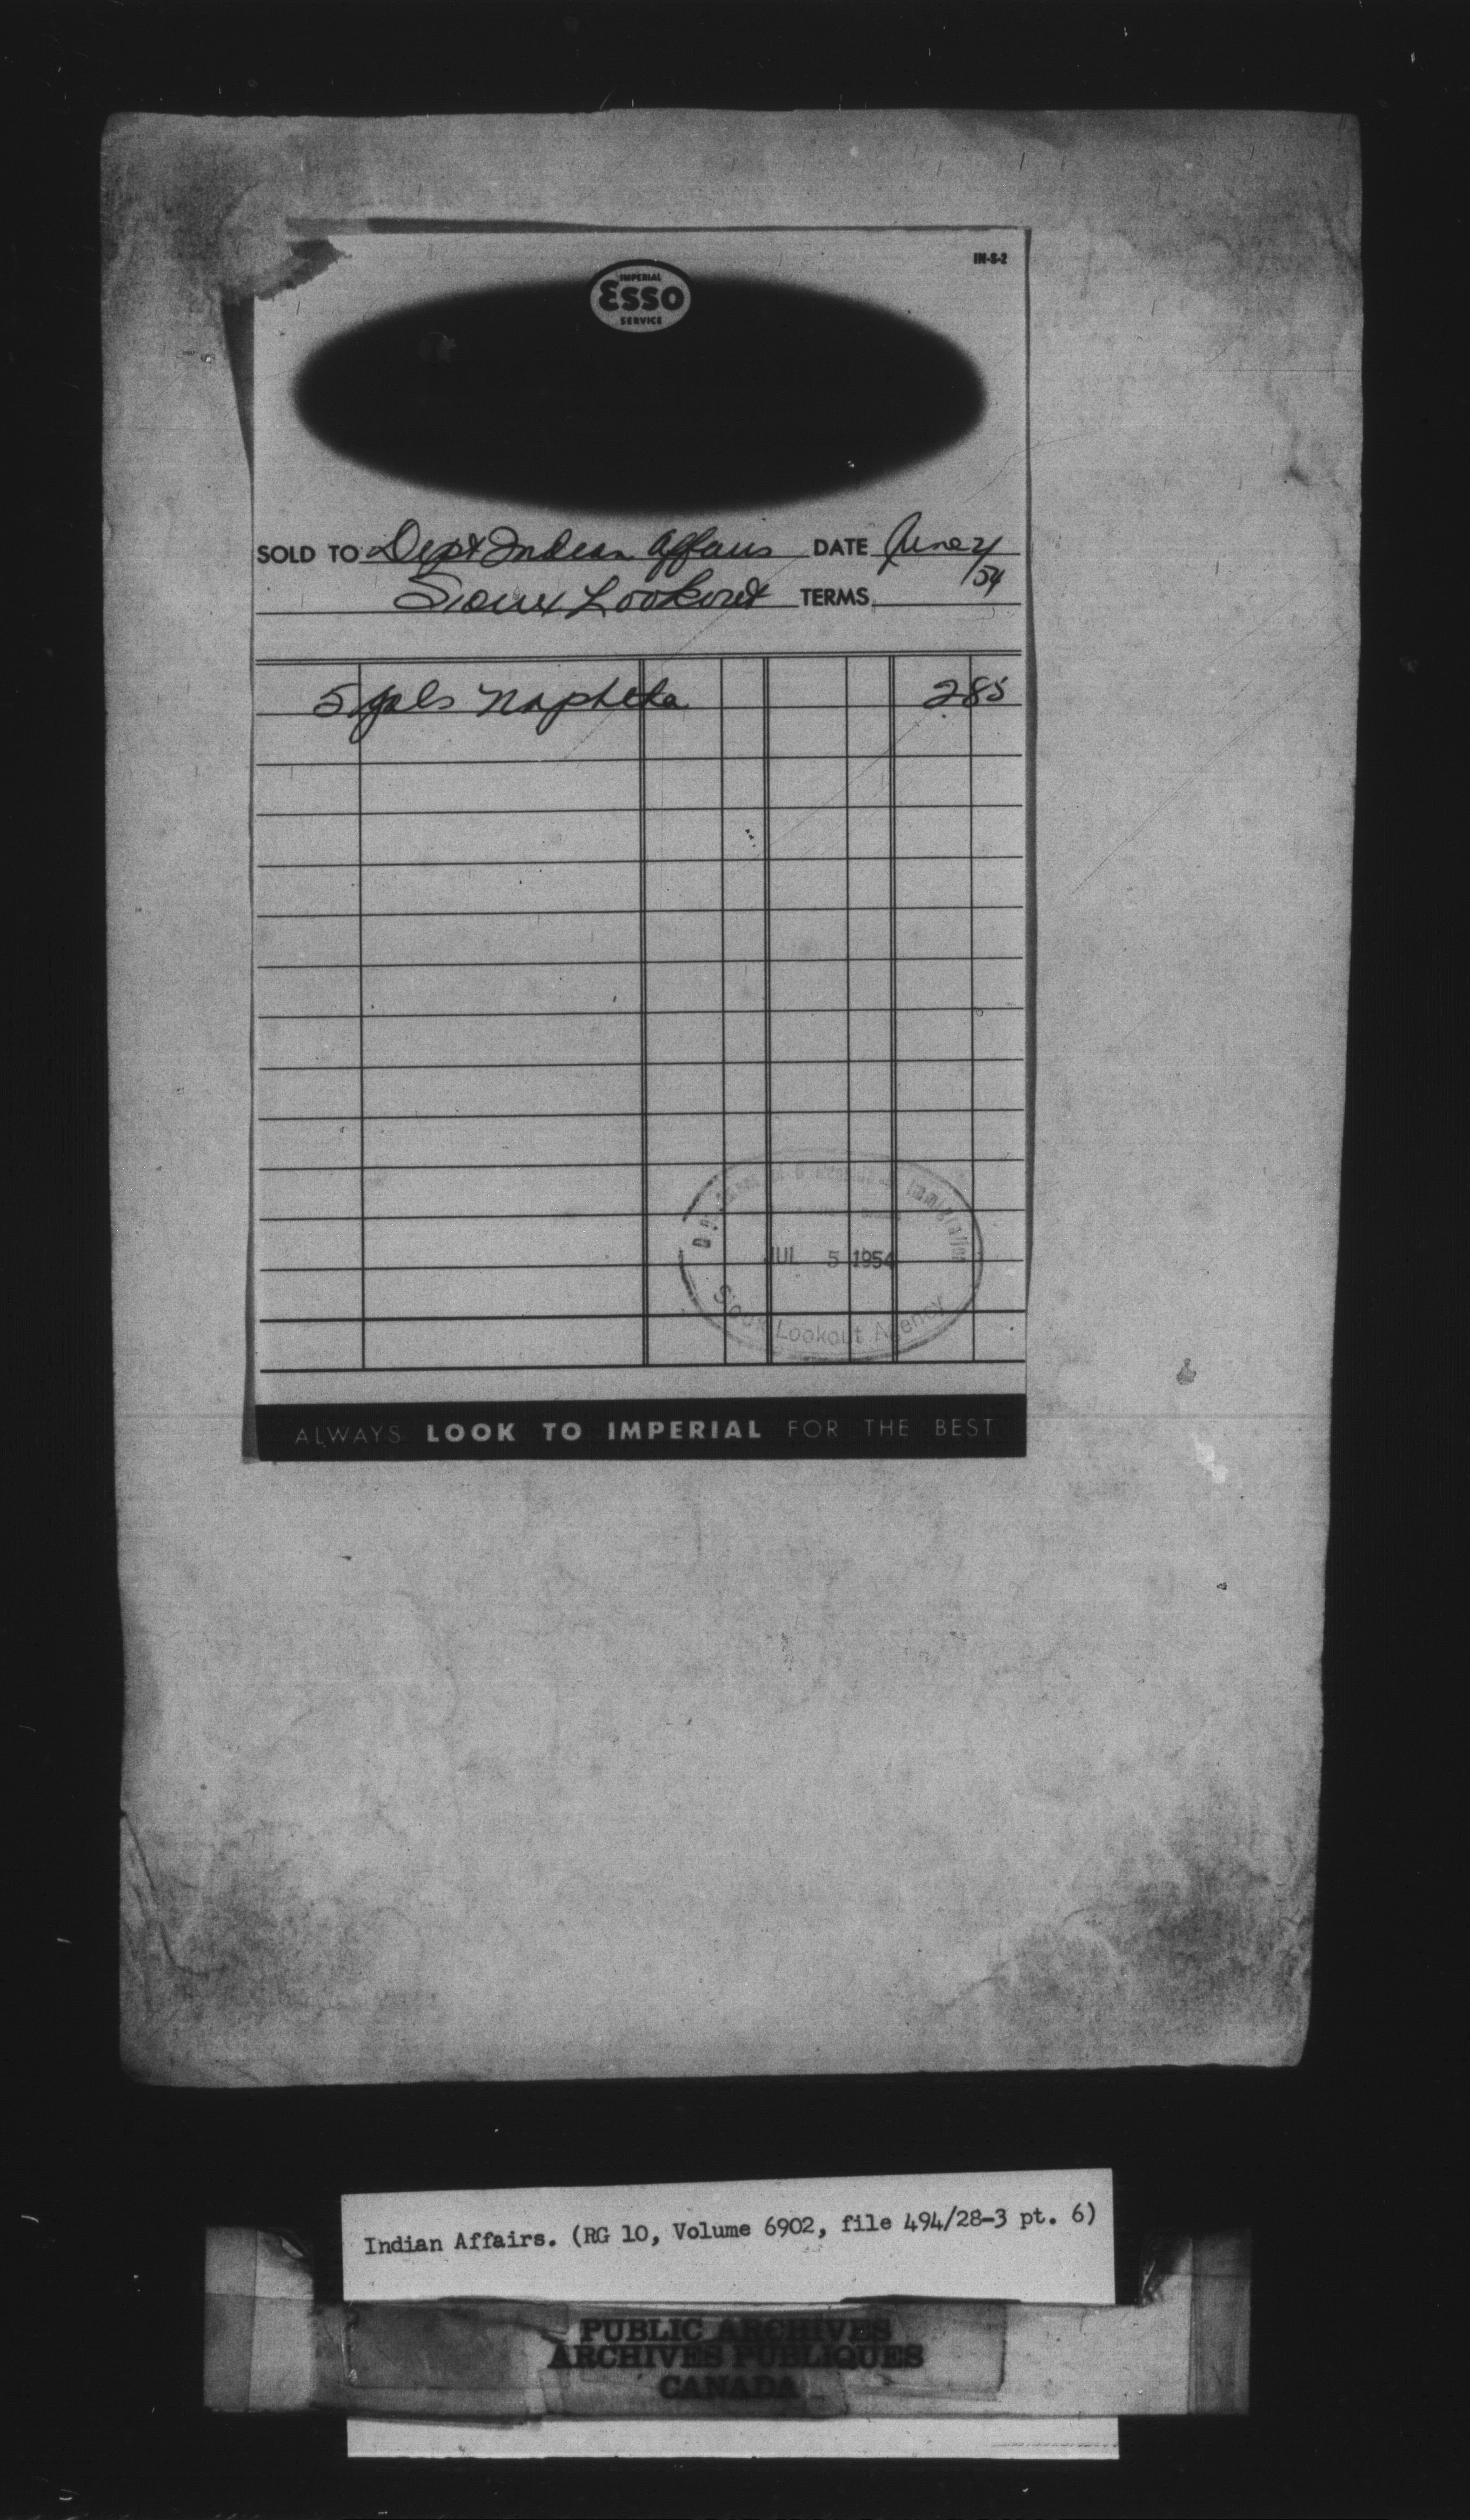 IN-S-2
IMPERIAL
Esso
SERVICE
SOLD TO Dept Indian Affairs DATE June 21/54
Sioux Lookout TERMS
5 gals Naphtha 2 85
Department of Citizenship and Immigration
JUL 5 1954
Sioux Lookout Agency
ALWAYS LOOK TO IMPERIAL FOR THE BEST
Indian Affairs. (RG 10, Volume 6902, file 494/28-3 pt. 6)
PUBLIC ARCHIVES
ARCHIVES PUBLIQUES
CANADA